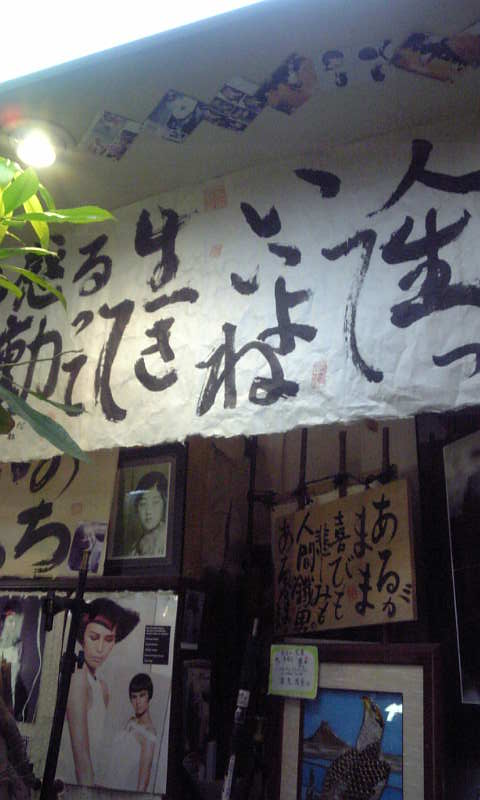 人生っ
て
いいよね
生き
て
るって
感動
だね
のち
あるが
まま
喜びも
悲しみも
人間